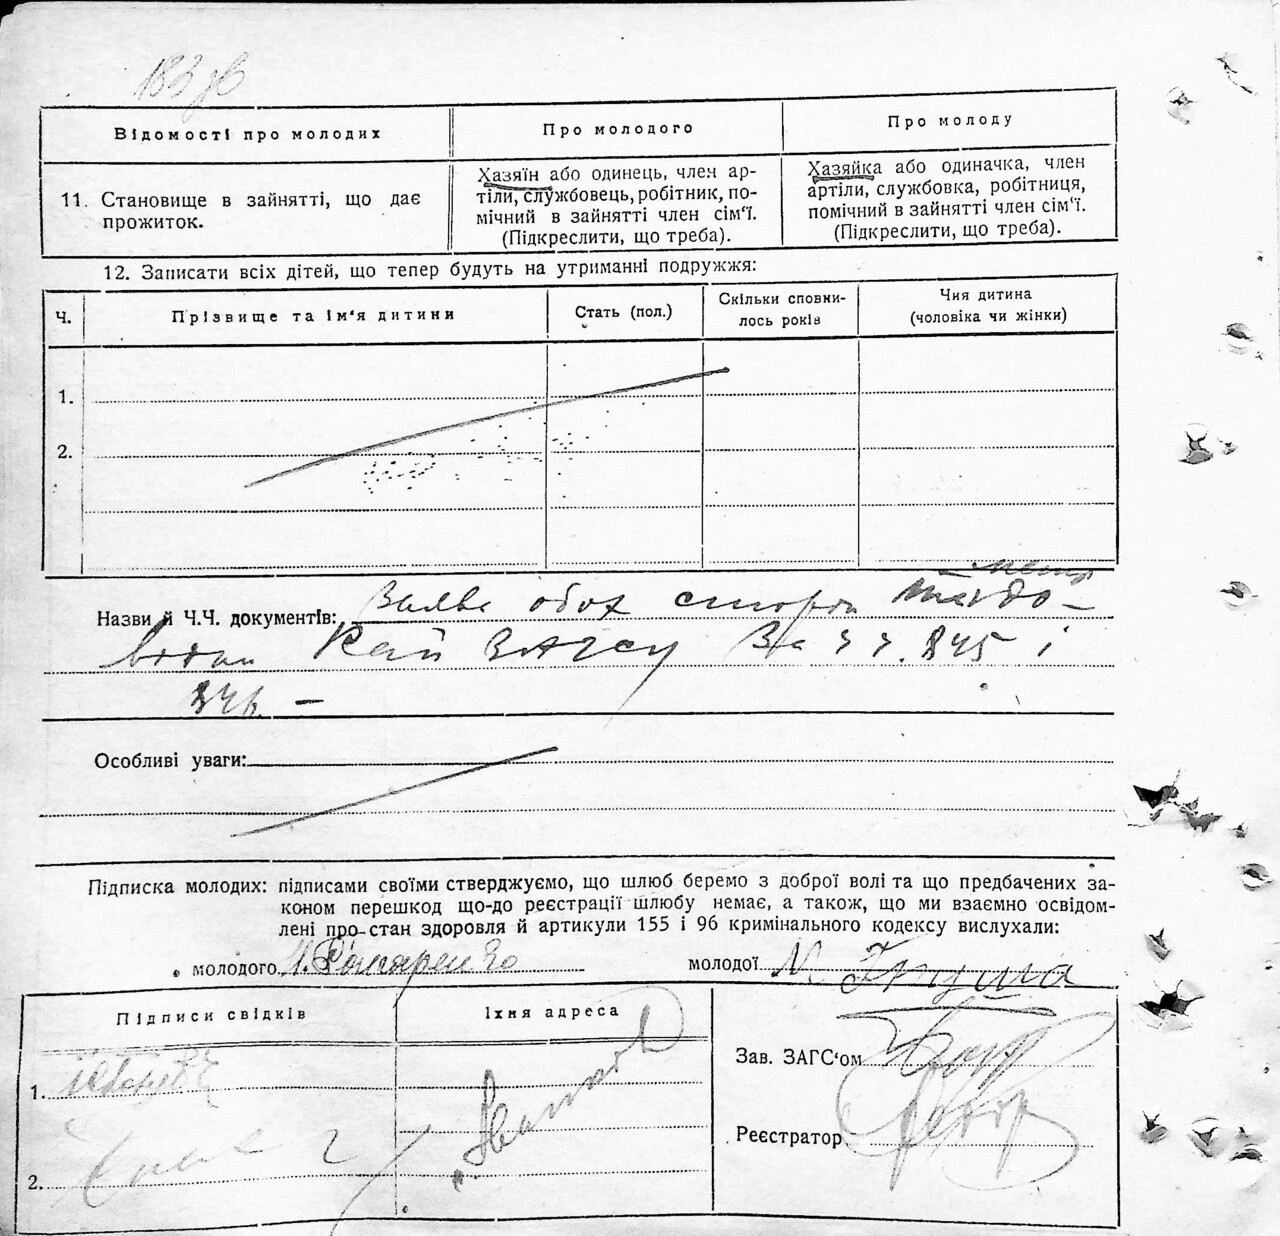 183
Відомості про молодих
Про молодого
Про молоду
11. Становище в зайнятті, що дає
прожиток.
Хазяїн або одинець, член ар-
тіли, службовець, робітник, по-
мічний в зайнятті член сім'ї.
(Підкреслити, що треба).
Хазяйка або одиначка, член
артіли, службовка, робітниця,
помічний в зайнятті член сім'ї.
(Підкреслити, що треба).
12. Записати всіх дітей, що тепер будуть на утриманні подружжя:
Ч.
Прізвище та ім'я дитини
Стать (пол.)
Скільки сповни-
лось років
Чия дитина
(чоловіка чи жінки)
1.
2.
Назви й Ч.Ч. документів: Заява обох сторон
Рай ЗАГСу За 845 і
Особливі уваги:
Підписка молодих: підписами своїми стверджуємо, що шлюб беремо з доброї волі та що предбачених за-
коном перешкод що-до реєстрації шлюбу немає, а також, що ми взаємно освідом-
лені про стан здоровля й артикули 155 і 96 кримінального кодексу вислухали:
молодого
молодої
Підписи свідків
Їхня адреса
1.
2.
Зав. ЗАГС'ом
Реєстратор